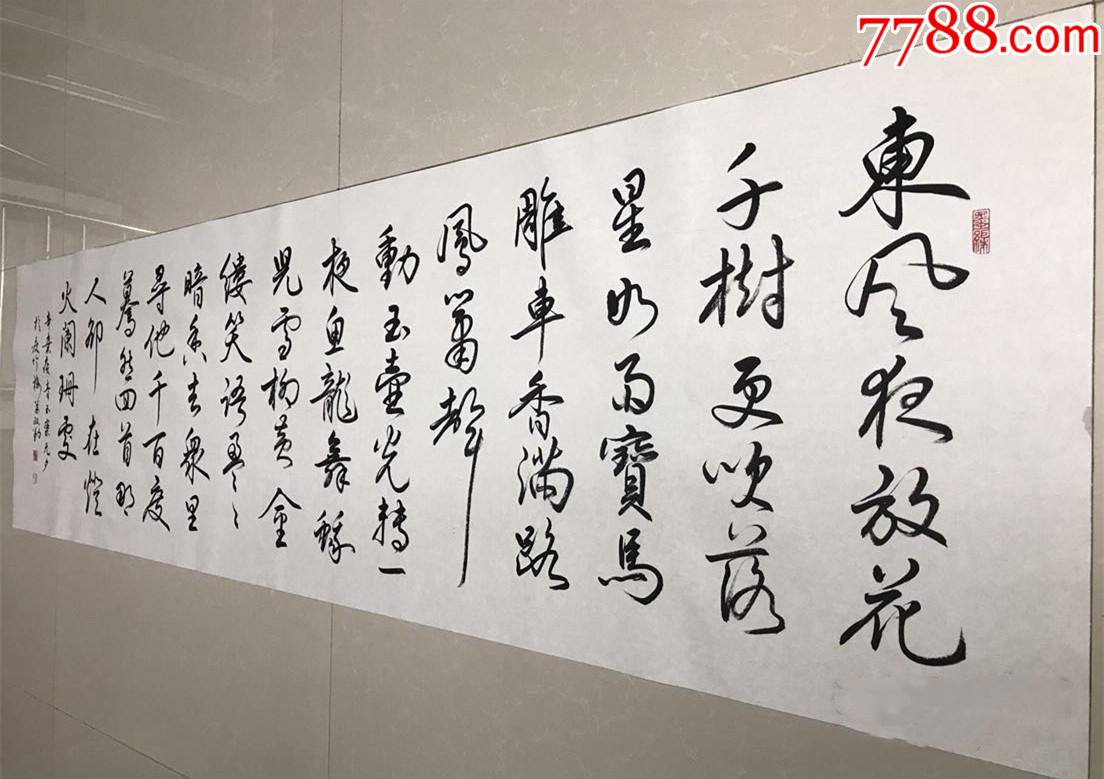 7788.com
東風夜放花
千樹更吹落
星如雨寶馬
雕車香滿路
鳳簫聲
動玉壺光轉一
夜魚龍舞蛾
兒雪柳黃金
縷笑語盈々
暗香去衆里
尋他千百度
驀然回首那
人卻在燈
火闌珊處
辛棄疾青玉案元夕